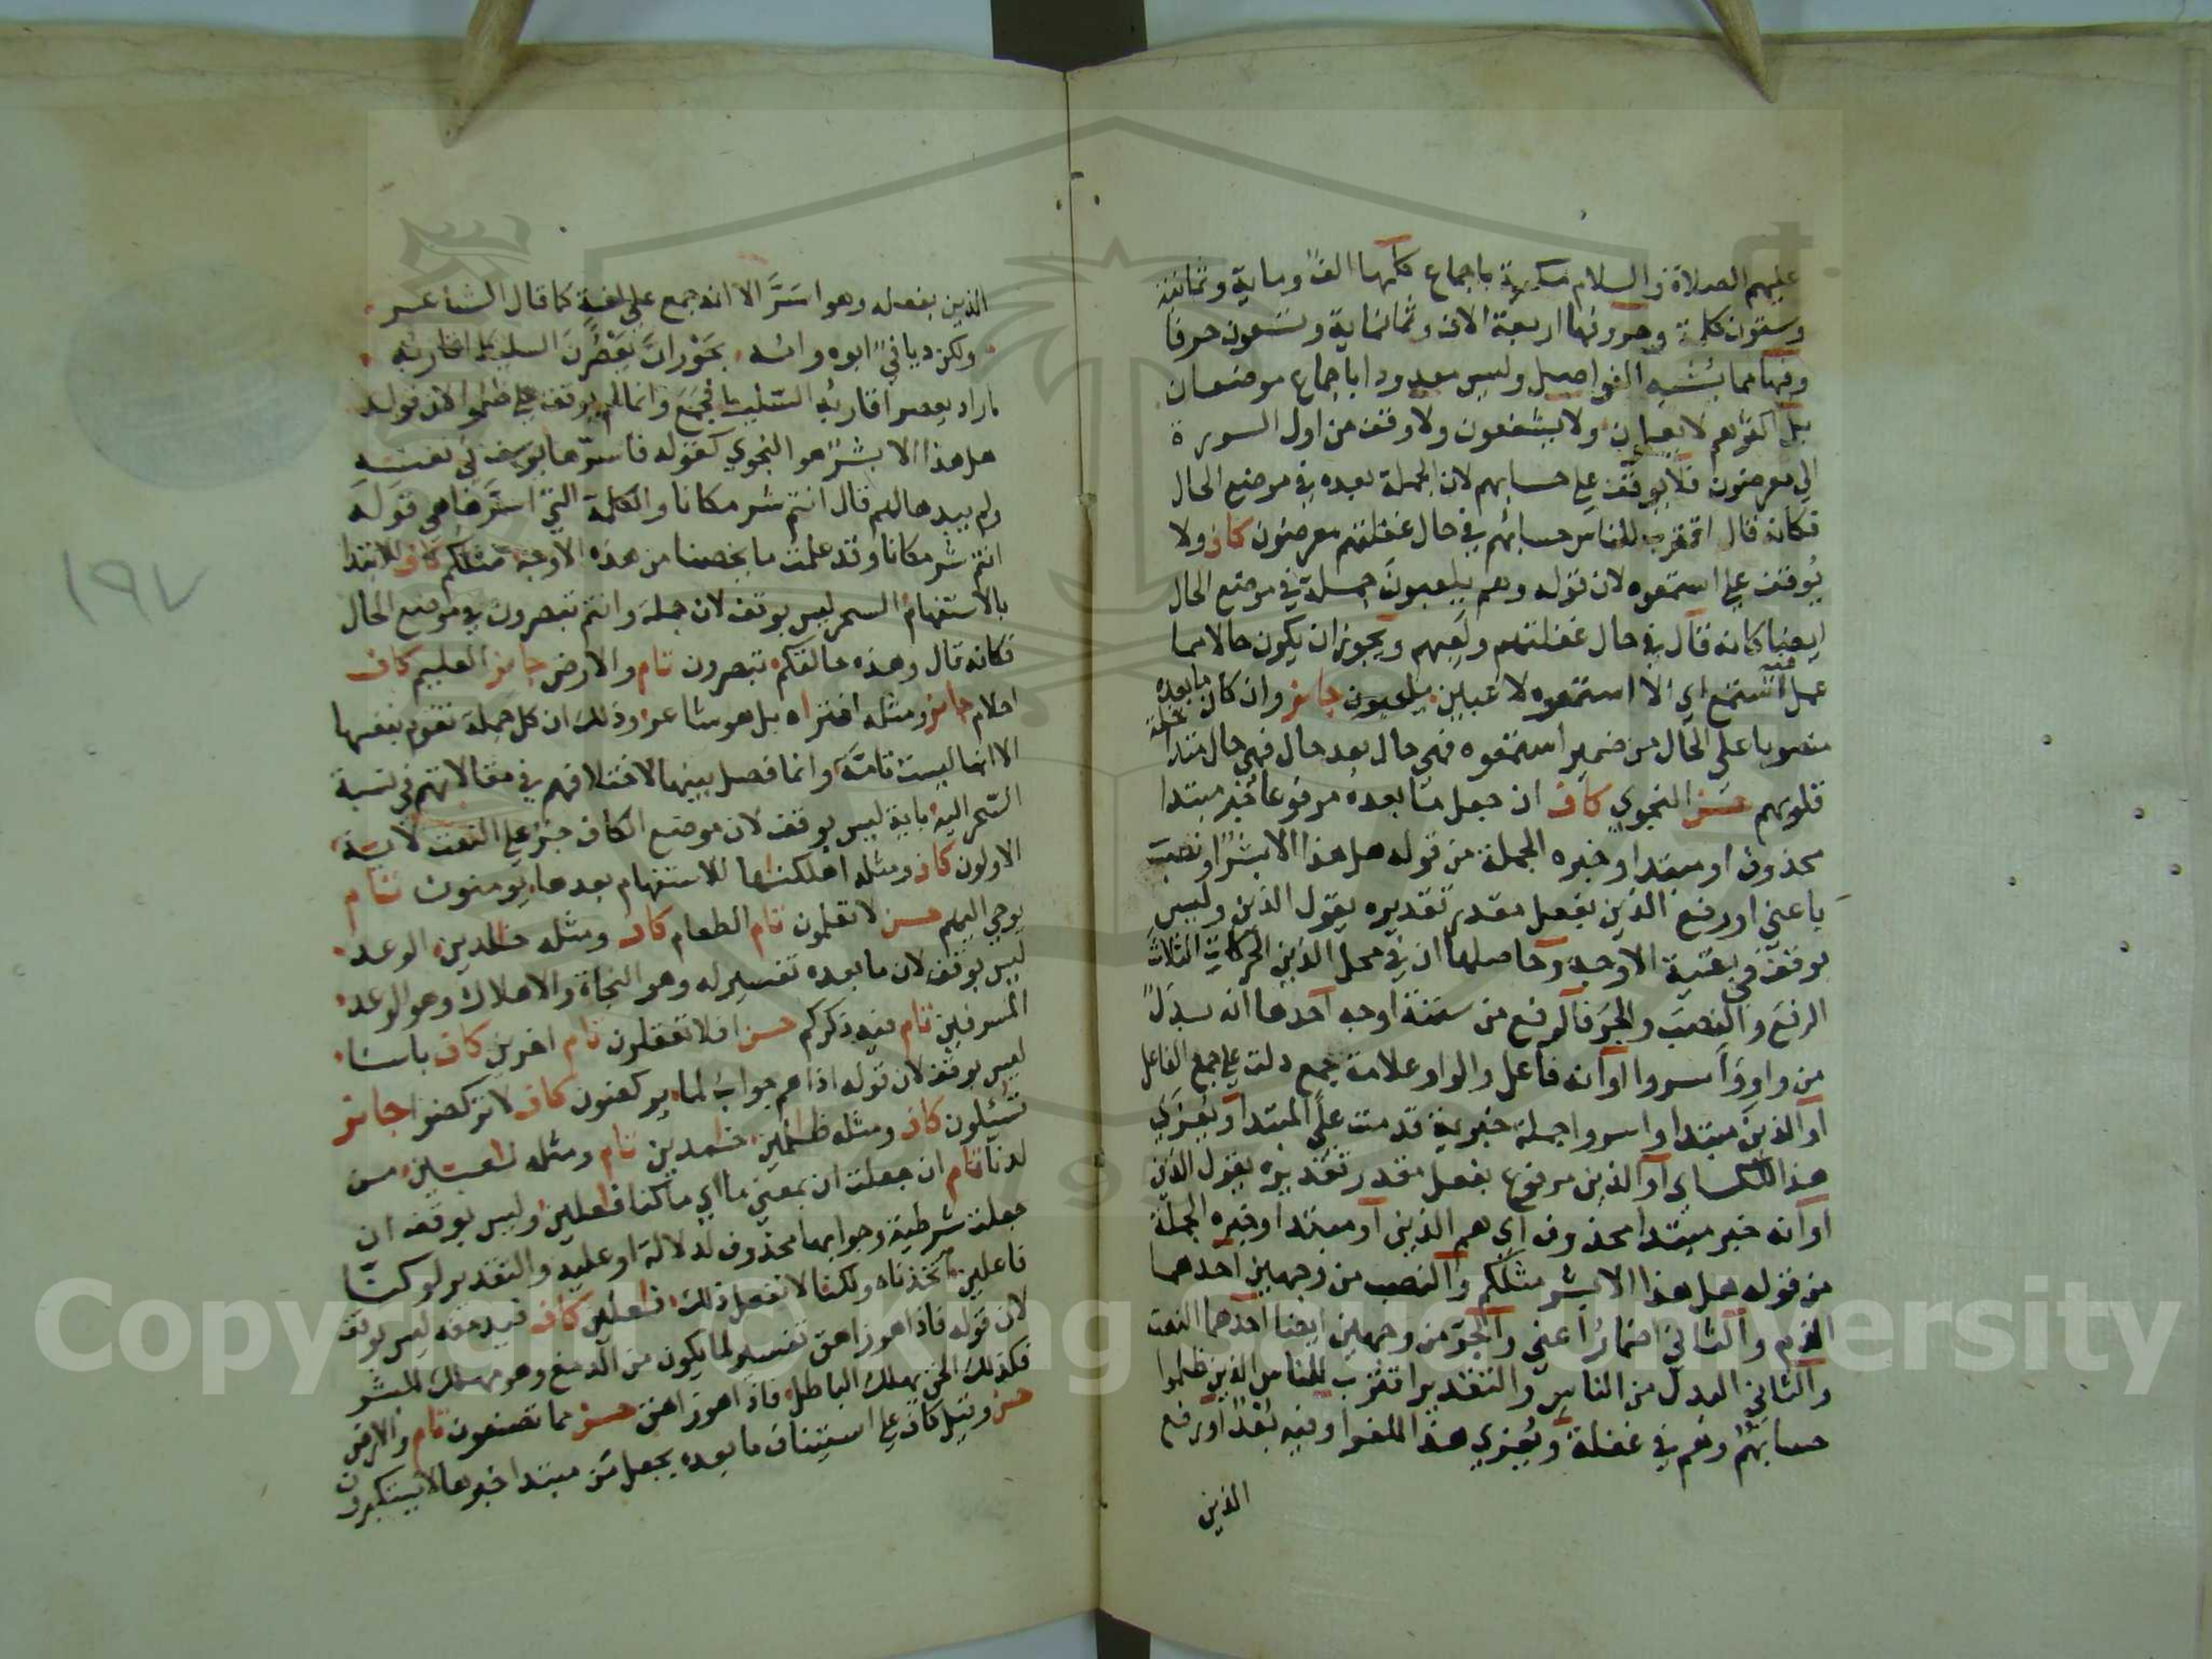 عليهم الصلاة والسلام مكية باجماع كلمها الف وماية وثمانية
وستون كلمة وحروفها اربعة الاف وثمانماية وتسعون حرفا
وفيها مما يشبه الفواصل وليس معدودا باجماع موضعان
بل اكثرهم لا يعلمون ولا يشفعون ولا وقف من اول السورة
الي معرضون فلا يوقف علي حسابهم لان الجملة بعده في موضع الحال
فكانه قال اقترب للناس حسابهم في حال غفلتهم معرضون كاف ولا
يوقف علي استمعوه لان قوله وهم يلعبون جملة في موضع الحال
ايضا كانه قال في حال غفلتهم ولعبهم ويجوز ان يكون حالا مما
عمل فيه استمع اي الا استمعوه لاعبين يلعبون جايز وان كان ما بعده
منصوبا علي الحال من ضمير استمعوه فهي حال بعد حال فهي حال متداخلة
قلوبهم حسن النجوي كاف ان جعل ما بعده مرفوعا خبر مبتدا
محذوف او مبتدا وخبره الجملة من قوله هل هذا الا بشر او نصب
باعني او رفع الذين بفعل مقدر تقديره يقول الذين وليس
بوقف في بقية الاوجه وحاصلها ان في محل الذين الحركات الثلاث
الرفع والنصب والجر فالرفع من ستة اوجه احدها انه بدل
من واو واسروا او انه فاعل والواو علامة جمع دلت علي جمع الفاعل
او الذين مبتدا واسروا جملة خبرية قدمت علي المبتدا ويعزي
هذا للكساي او الذين مرفوع بفعل مقدر تقديره يقول الذين
او انه خبر مبتدا محذوف اي هم الذين او مبتدا وخبره الجملة
من قوله هل هذا الا بشر مثلكم والنصب من وجهين احدهما
الذم والثاني اضمار اعني والجر من وجهين ايضا احدهما النعت
والثاني البدل من الناس والتقدير اقترب للناس الذين ظلموا
حسابهم وهم في غفلة ويعزي هذا للفرا وفيه بعد او رفع
الذين
الذين بفعله وهو اسر الا انه جمع علي لغة كما قال الشاعر
ولكن ديافي ابوه وامه بحوران يعصرن السليط اقاربه
اراد يعصر اقاربه السليط فجمع وانما لم يوقف علي ظلموا لان قوله
هل هذا الا بشر هو النجوي كقوله فاسرها يوسف في نفسه
ولم يبدها لهم قال انتم شر مكانا والكلمة التي اسرها هي قوله
انتم شر مكانا وقد علمت ما يخصنا من هذه الاوجه مثلكم كاف للابتدا
بالاستفهام السحر ليس بوقف لان جملة وانتم تبصرون في موضع الحال
فكانه قال وهذه حالتكم تبصرون تام والارض جايز العليم كاف
احلام جايز ومثله افتراه بل هو شاعر وذلك ان كل جملة تقوم بنفسها
الا انها ليست تامة وانما فصل بينها لاختلافهم في مقالاتهم في نسبة
السحر اليه باية ليس بوقف لان موضع الكاف جر علي النعت لاية
الاولون كاف ومثله اهلكنها للاستفهام بعدها يومنون تام
يوحي اليهم حسن لا تعلمون تام الطعام كاف ومثله خالدين الوعد
ليس بوقف لان ما بعده تفسير له وهو النجاة والاهلاك وهو الوعد
المسرفين تام فيه ذكركم حسن افلا تعقلون تام اخرين كاف باسنا
ليس بوقف لان قوله اذا هم جواب لما يركضون كاف لا تركضوا جايز
تسئلون كاف ومثله ظلمين خامدين تام ومثله لعبين من
لدنا تام ان جعلت ان بمعني ما اي ما كنا فاعلين وليس بوقف ان
جعلت شرطية وجوابها محذوف لدلالة لو عليه والتقدير لو كنا
فاعلين لاتخذناه ولكنا لا نفعل ذلك فاعلين كاف فيدمغه ليس بوقف
لان قوله فاذا هو زاهق تفسير لما يكون من الدمغ وهو مهلك للمشر
فكذلك الحق يهلك الباطل فاذا هو زاهق حسن مما تصفون تام والارض
حسن وقيل كاف علي استيناف ما بعده بجعل من مبتدا خبرها لا يستكبرون
١٩٧
Copyright © King Saud University